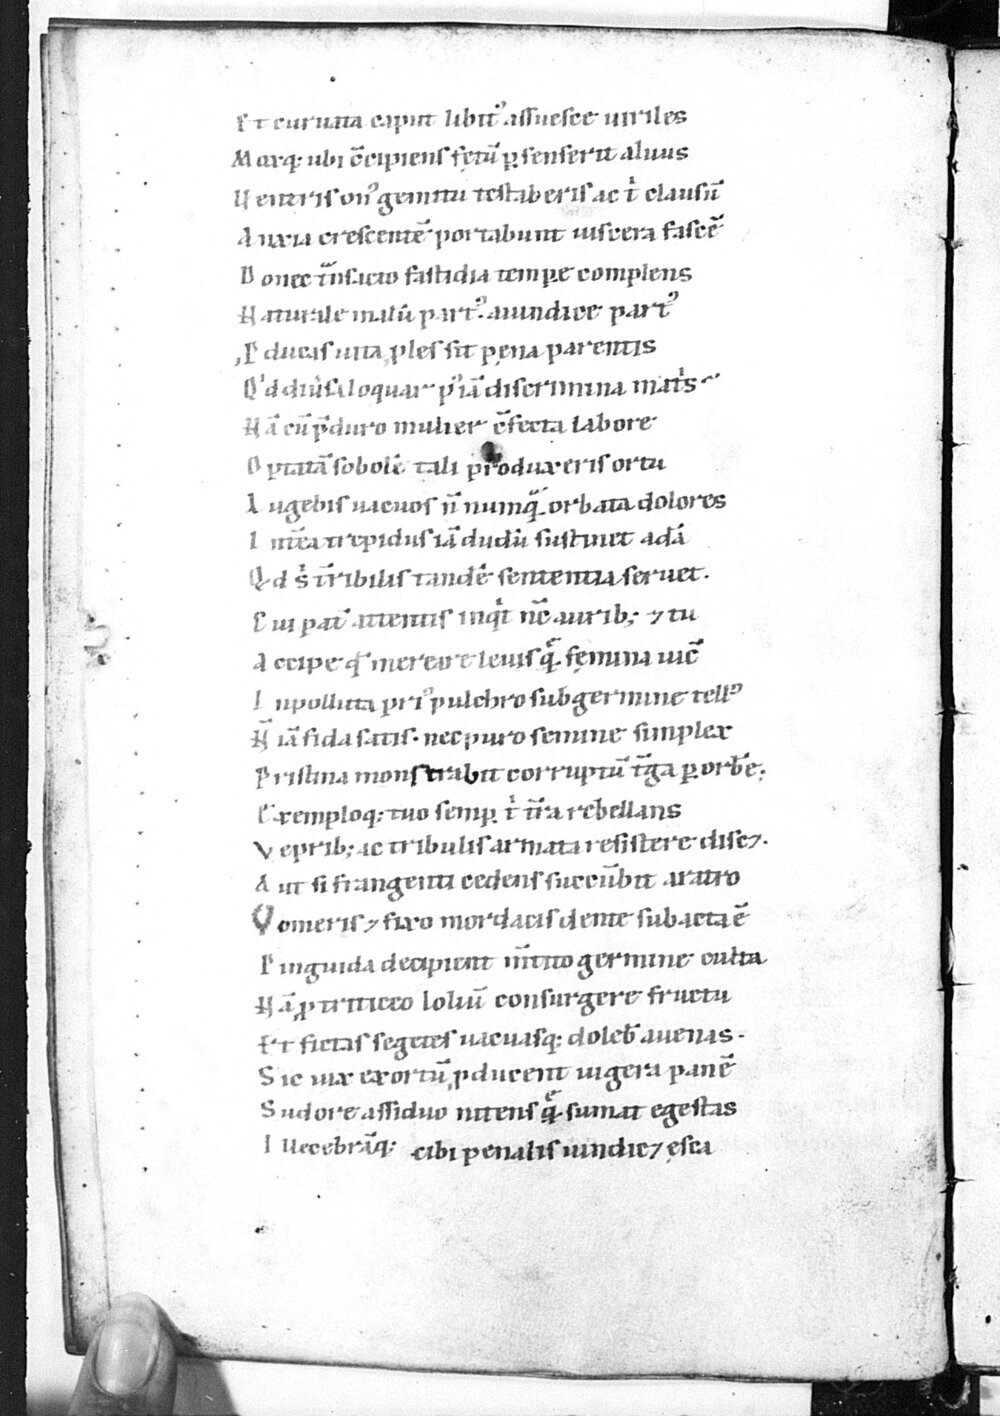 Et curuata caput libit᾽ assuesce uiriles
Moxq; ubi c̄cipiens fętū p̱senserit aluus
Uentris on᾽ gemitu testaberis ac t̍ clausū
Anxia crescentē portabunt uiscera fascē
Donec t̄nsacto fastidia tempore complens
Naturale malū part᾽ · uindice part᾽
Ꝓducas uita ꝓles sit pęna parentis
Q'd diūsa loquar p᾽ iā discrimina mat̍s
Nā cū p̄duro mulier c̄fecta labore
Optatā sobolē tali produxeris ortu
Lugebis uacuos n̄ numq̄ orbata dolores
Int̄ea trepidus iā dudū sustinet adā
Qd s̍ t̄ribilis tandē sententia seruet.
Cui pat̄ attentis inq̍t n̄c aurib; ⁊ tu
Accipe q' mereare leuis q̄ femina uic̄
Inpolluta pri᾽ pulchro sub germine tell᾽
N̄ iā fida satis · nec puro semine simplex
Pristina monstrabit corruptū t̄ga p̱ orbē;
Exemploq; tuo semp̱ t̍ t̄ra rebellans
Veprib; ac tribulis armata resistere disc⁊.
Aut si frangenti cedens succūbit aratro
Vomeris ⁊ fixo mordacis dente subacta ē
Pinguida decipient m̄tito germine culta
Nā ꝓ triticeo loliū consurgere fructu
Et fictas segetes uacuasq; doleb̄ auenas.
Sic uix exortū ꝓducent uigera panē
Sudore assiduo nitens q̄ sumat egestas
Illecebrāq; cibi penalis uindic⁊ ęsca